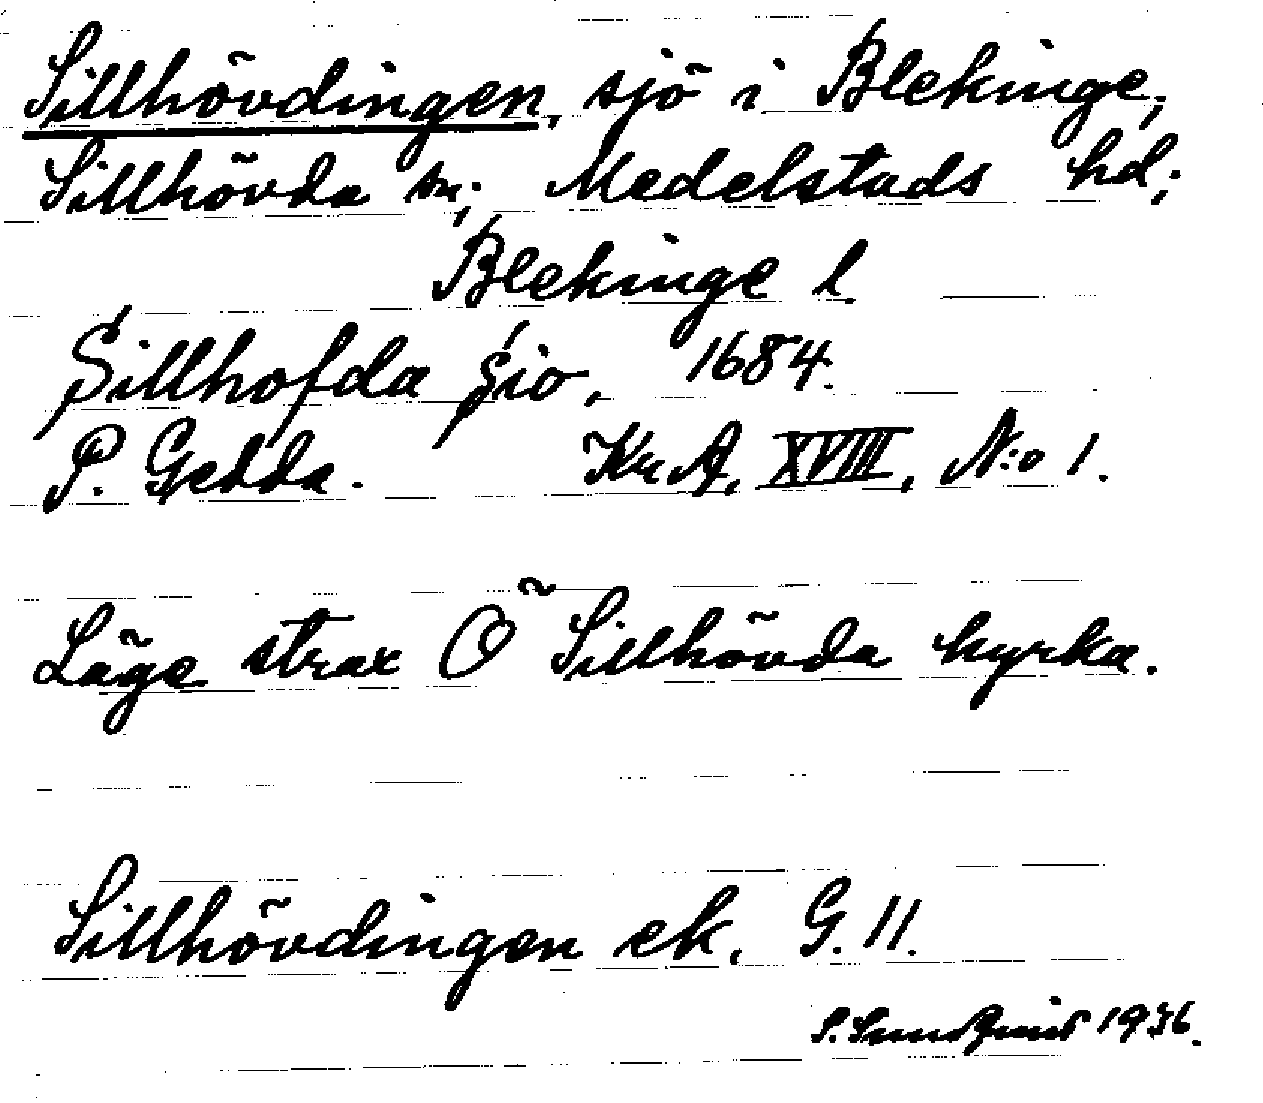 Sillhövdingen, sjö i Blekinge,
Sillhövda sn; Medelstads hd;
Blekinge l.
Sillhofda sio, 1684.
P. Gedda. KrA, XVIII, N:o 1.
Läge strax Ö Sillhövda kyrka.
Sillhövdingen ek. G. 11.
S. Sundquist 1936.